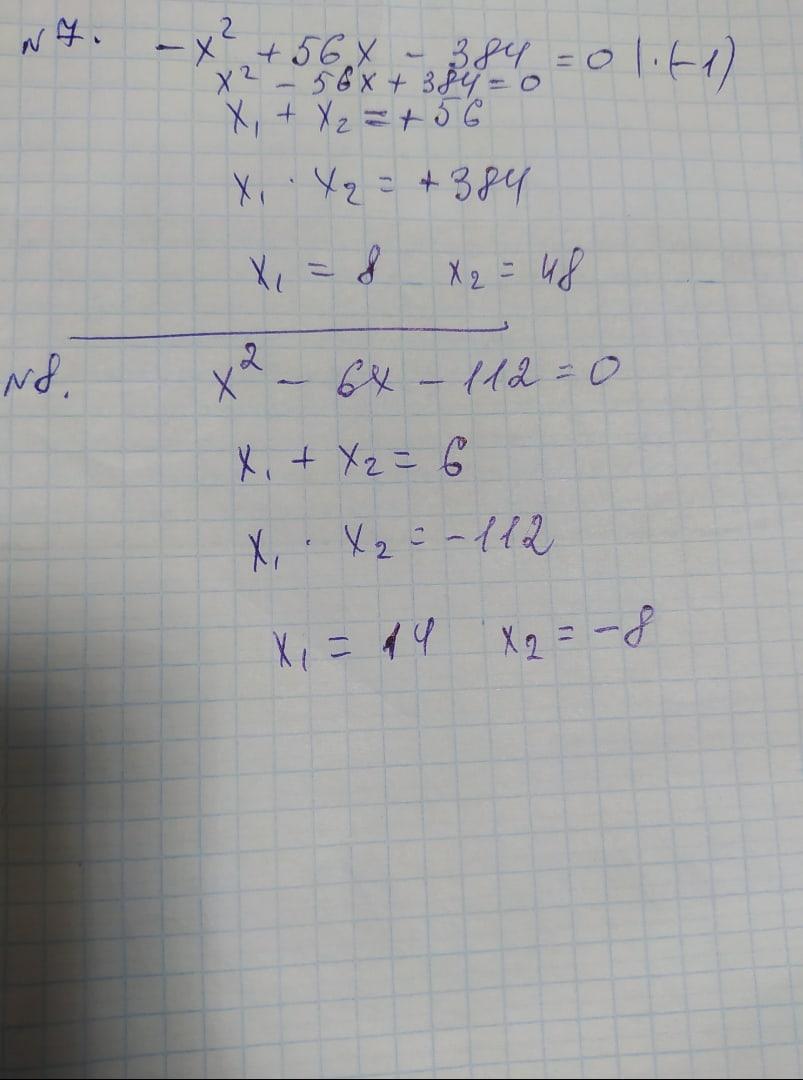 N7. -x² + 56x - 384 = 0 | ·(-1)
x² - 56x + 384 = 0
x₁ + x₂ = +56
x₁ · x₂ = +384
x₁ = 8 x₂ = 48
N8. x² - 6x - 112 = 0
x₁ + x₂ = 6
x₁ · x₂ = -112
x₁ = 14 x₂ = -8